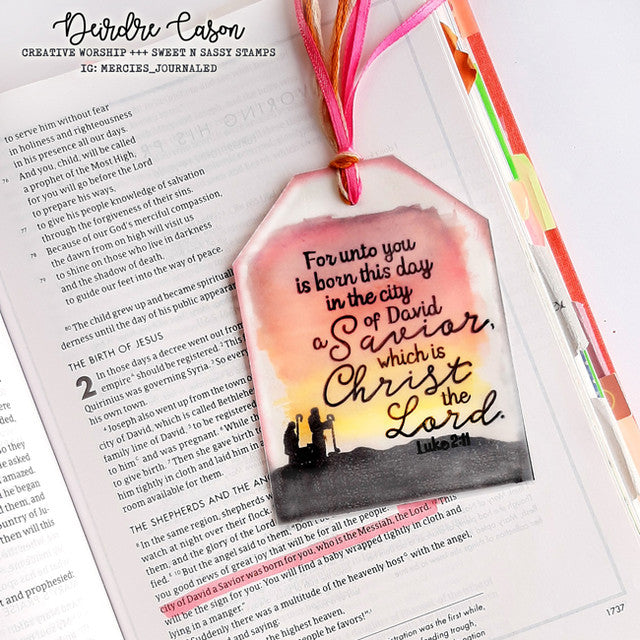 Deirdre Cason
CREATIVE WORSHIP +++ SWEET N SASSY STAMPS
IG: MERCIES_JOURNALED
to serve him without fear
in holiness and righteousness
in his presence all our days.
76 And you, child, will be called
a prophet of the Most High,
for you will go before the Lord
to prepare his ways,
77 to give his people knowledge of salvation
through the forgiveness of their sins.
78 Because of our God's merciful compassion,
the dawn from on high will visit us
79 to shine on those who live in darkness
and the shadow of death,
to guide our feet into the way of peace.
80 The child grew up and became spiritually
derness until the day of his public appearan
THE BIRTH OF JESUS
2 In those days a decree went out from
empire should be registered. 2 This
Quirinius was governing Syria. 3 So every
his own town.
4 Joseph also went up from the town o
city of David, which is called Bethlehe
family line of David, 5 to be registered
to him and was pregnant. 6 While th
to give birth. 7 Then she gave birth t
him tightly in cloth and laid him in
room available for them.
THE SHEPHERDS AND THE AN
8 In the same region, shepherds w
watch at night over their flock.
them, and the glory of the Lord
fied. 10 But the angel said to them, "Don't
you good news of great joy that will be for all the people.
city of David a Savior was born for you, who is the Messiah, the Lord. 12 This
will be the sign for you: You will find a baby wrapped tightly in cloth and
lying in a manger."
13 Suddenly there was a multitude of the heavenly host with the angel,
and saying:
highest heaven,
people he favors!
registration was the first while,
1737
For unto you
is born this day
in the city
of David
a Savior,
which is
Christ
the
Lord.
Luke 2:11
they
he asked
amazed.
he began
them, and
ountry of Ju-
then will this
and prophesied: